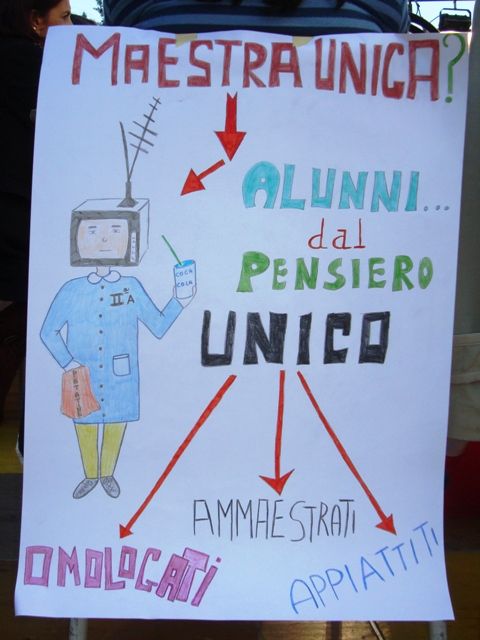 MAESTRA UNICA?
ALUNNI...
dal
PENSIERO
UNICO
COCA
COLA
IIªA
PATATINE
AMMAESTRATI
OMOLOGATI
APPIATTITI